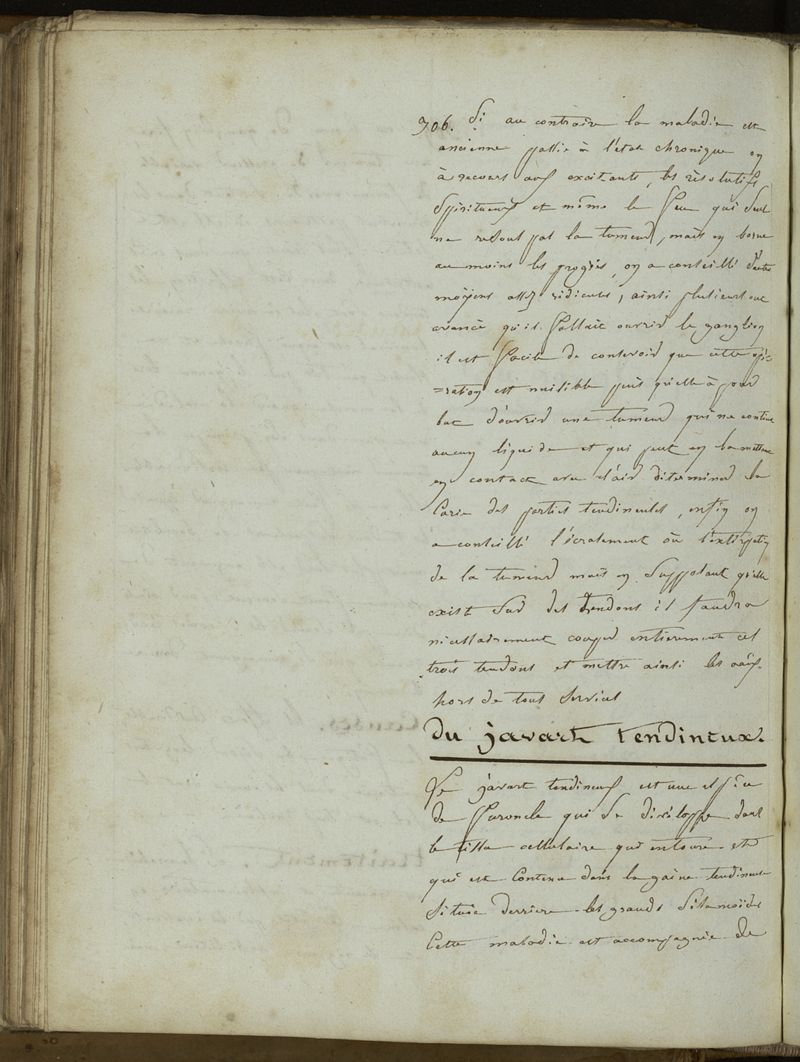 706. Si au contraire la maladie est
ancienne passée à l'état chronique on
à recours aux excitants, les résolutifs
Spiritueux et même le feu qui seul
ne resout pas la tumeur, mais en borne
au moins les progrès, on a conseillé d'autres
moyens assez ridicules, ainsi plusieurs ont
avancé qu'il fallait ouvrir le ganglion
il est facile de concevoir que cette opé-
=ration est nuisible puis qu'elle à pour
but d'ouvrir une tumeur qui ne contient
aucun liquide et qui peut en la mettant
en contact avec l'air déterminer la
Carie des parties tendineuses, enfin on
a conseillé l'écrasement ou l'extirpation
de la tumeur mais en supposant qu'elle
existe Sur des tendons il faudra
nécessairement couper entierement ces
trois tendons et mettre ainsi les
hors de tout Service
du javart tendineux.
Le javart tendineux est une espèce
de furoncle qui se développe dans
le tissu cellulaire qui entoure et
qui est Contenu dans la gaine tendineuse
Située derrière les grands Sésamoïdes
Cette maladie est accompagnée de